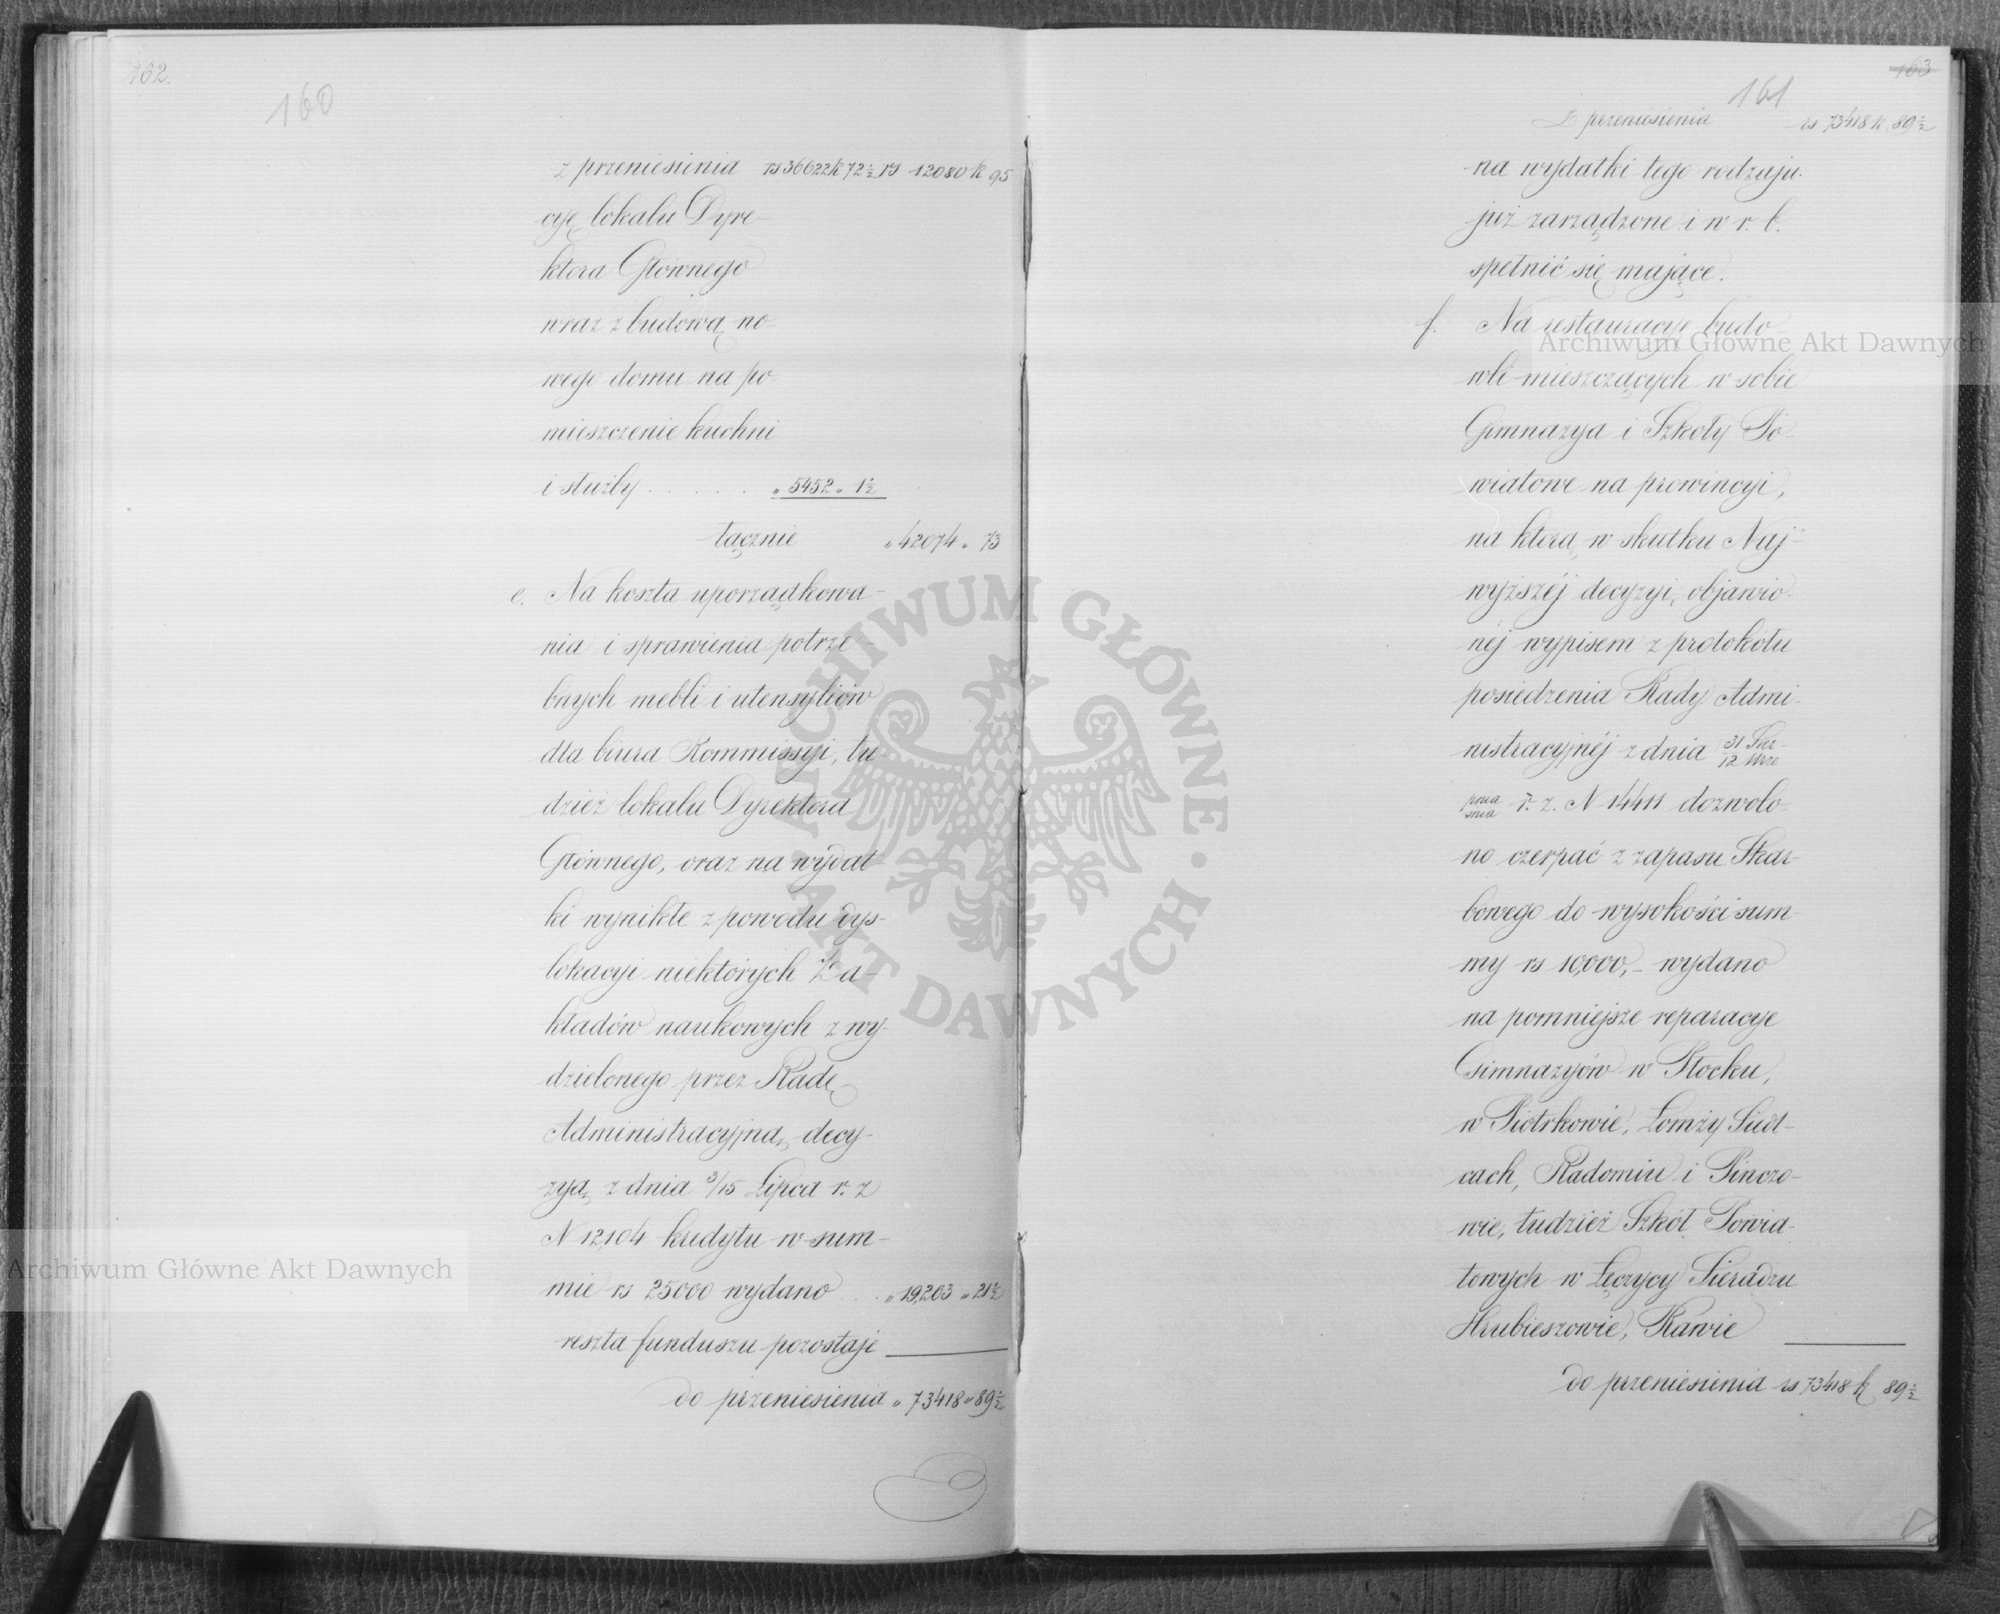 162.
160
z przeniesienia rs 36622 k 72½ rs 12080 k 95
cyę lokalu Dyre-
ktora Głównego
wraz z budową no-
wego domu na po-
mieszczenie kuchni
i służby . . . . . . „ 5452 „ 1½
łącznie „ 42074 „ 73
e. Na koszta uporządkowa-
nia i sprawienia potrze-
bnych mebli i utensyliów
dla biura Kommissyi, tu-
dzież lokalu Dyrektora
Głównego, oraz na wydat-
ki wynikłe z powodu dys-
lokacyi niektórych Za-
kładów naukowych z wy-
dzielonego przez Radę
Administracyjną, decy-
zyą z dnia 3/15 Lipca r. z
N 12,104 kredytu w sum-
mie rs 25000 wydano . . . „ 19,203 „ 21½
reszta funduszu pozostaje
do przeniesienia „ 73418 „ 89½
163
161
Z przeniesienia rs 73418 k 89½
na wydatki tego rodzaju
już zarządzone i w r. b.
spełnić się mające.
f. Na restauracyę budo-
wli mieszczących w sobie
Gimnazya i Szkoły Po-
wiatowe na prowincyi,
na którą w skutku Naj-
wyższéj decyzyi, objawio-
néj wypisem z protokółu
posiedzenia Rady Admi-
nistracyjnéj z dnia 31 Sier-/12 Wrze
pnia/śnia r. z. N 14411 dozwolo-
no czerpać z zapasu Skar-
bowego do wysokości sum-
my rs 10,000,- wydano
na pomniejsze reparacye
Gimnazyów w Płocku,
w Piotrkowie, Łomży Siedl-
cach, Radomiu i Pinczo-
wie, tudzież Szkół Powia-
towych w Łęczycy Sieradzu
Hrubieszowie, Rawie
do przeniesienia rs 73418 k 89½
Archiwum Główne Akt Dawnych
Archiwum Główne Akt Dawnych
ARCHIWUM GŁÓWNE · AKT DAWNYCH ·